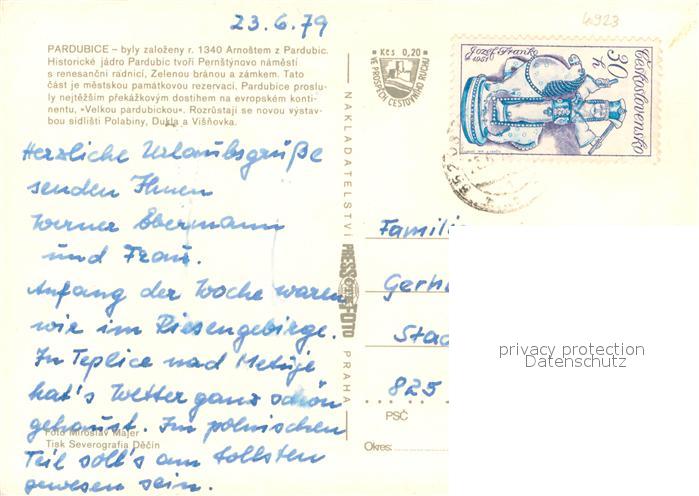 23.6.79
4923
PARDUBICE – byly založeny r. 1340 Arnoštem z Pardubic.
Historické jádro Pardubic tvoří Pernštýnovo náměstí
s renesanční radnicí, Zelenou bránou a zámkem. Tato
část je městskou památkovou rezervací. Pardubice proslu-
ly nejtěžším překážkovým dostihem na evropském konti-
nentu, »Velkou pardubickou«. Rozrůstají se novou výstav-
bou sídlišti Polabiny, Dukla a Višňovka.
Herzliche Urlaubsgrüße
senden Ihnen
Werner Ebermann
und Frau.
Anfang der Woche waren
wir im Riesengebirge.
In Teplice nad Metují
hat's Wetter ganz schön
gehaust. Im polnischen
Teil soll's am tollsten
gewesen sein.
Foto Miroslav Majer
Tisk Severografia Děčín
NAKLADATELSTVÍ
PRESSFOTO
PRAHA
Kčs 0,20
VE PROSPĚCH CESTOVNÍHO RUCHU
Jozef Franko
1951
30 h
Československo
Famili
Gerh
Stad
825
PSČ
Okres:
privacy protection
Datenschutz